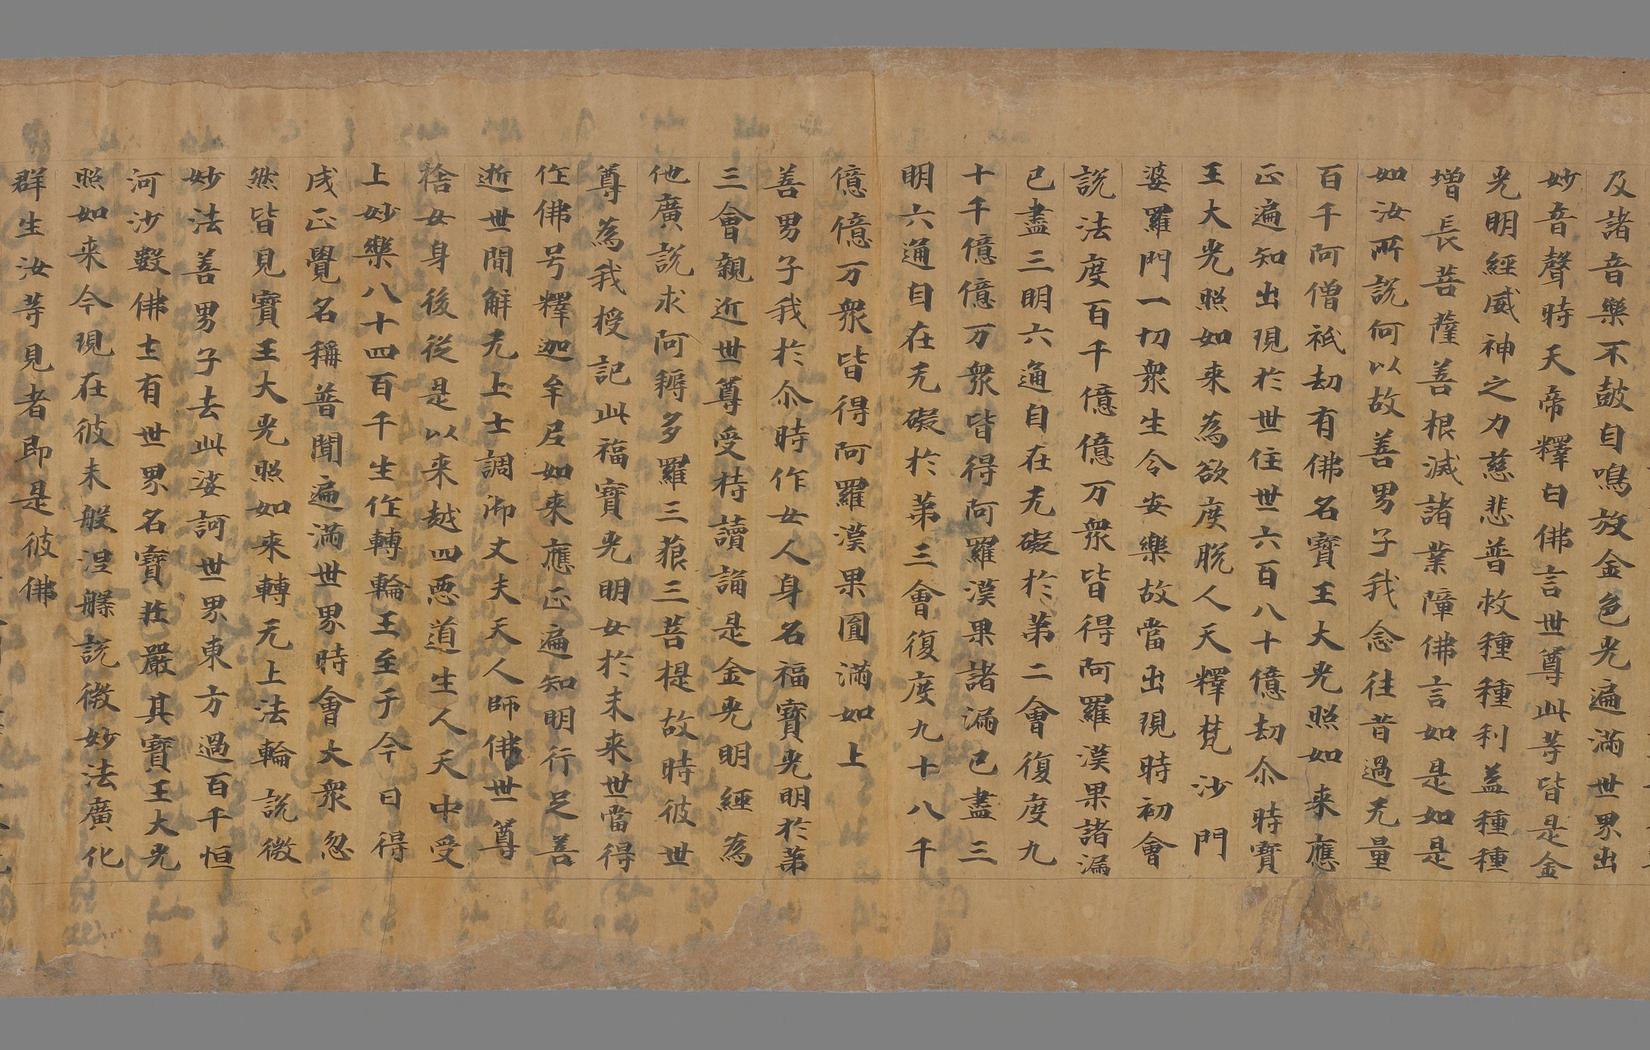 及諸音樂不鼓自鳴放金色光遍滿世界出
妙音聲時天帝釋白佛言世尊此等皆是金
光明經威神之力慈悲普救種種利益種種
增長菩薩善根滅諸業障佛言如是如是
如汝所說何以故善男子我念往昔過无量
百千阿僧祇劫有佛名寶王大光照如来應
正遍知出現於世住世六百八十億劫尒時寶
王大光照如来為欲度脫人天釋梵沙門
婆羅門一切衆生令安樂故當出現時初會
說法度百千億億万衆皆得阿羅漢果諸漏
已盡三明六通自在无礙於第二會復度九
十千億億万衆皆得阿羅漢果諸漏已盡三
明六通自在无礙於第三會復度九十八千
億億万衆皆得阿羅漢果圓滿如上
善男子我於尒時作女人身名福寶光明於第
三會親近世尊受持讀誦是金光明經為
他廣說求阿耨多羅三藐三菩提故時彼世
尊為我授記此福寶光明女於未来世當得
作佛号釋迦牟尼如来應正遍知明行足善
逝世間解无上士調御丈夫天人師佛世尊
捨女身後從是以来越四惡道生人天中受
上妙樂八十四百千生作轉輪王至于今日得
成正覺名稱普聞遍滿世界時會大衆忽
然皆見寶王大光照如来轉无上法輪說微
妙法善男子去此娑訶世界東方過百千恒
河沙數佛土有世界名寶莊嚴其寶王大光
照如来今現在彼未般涅槃說微妙法廣化
群生汝等見者即是彼佛